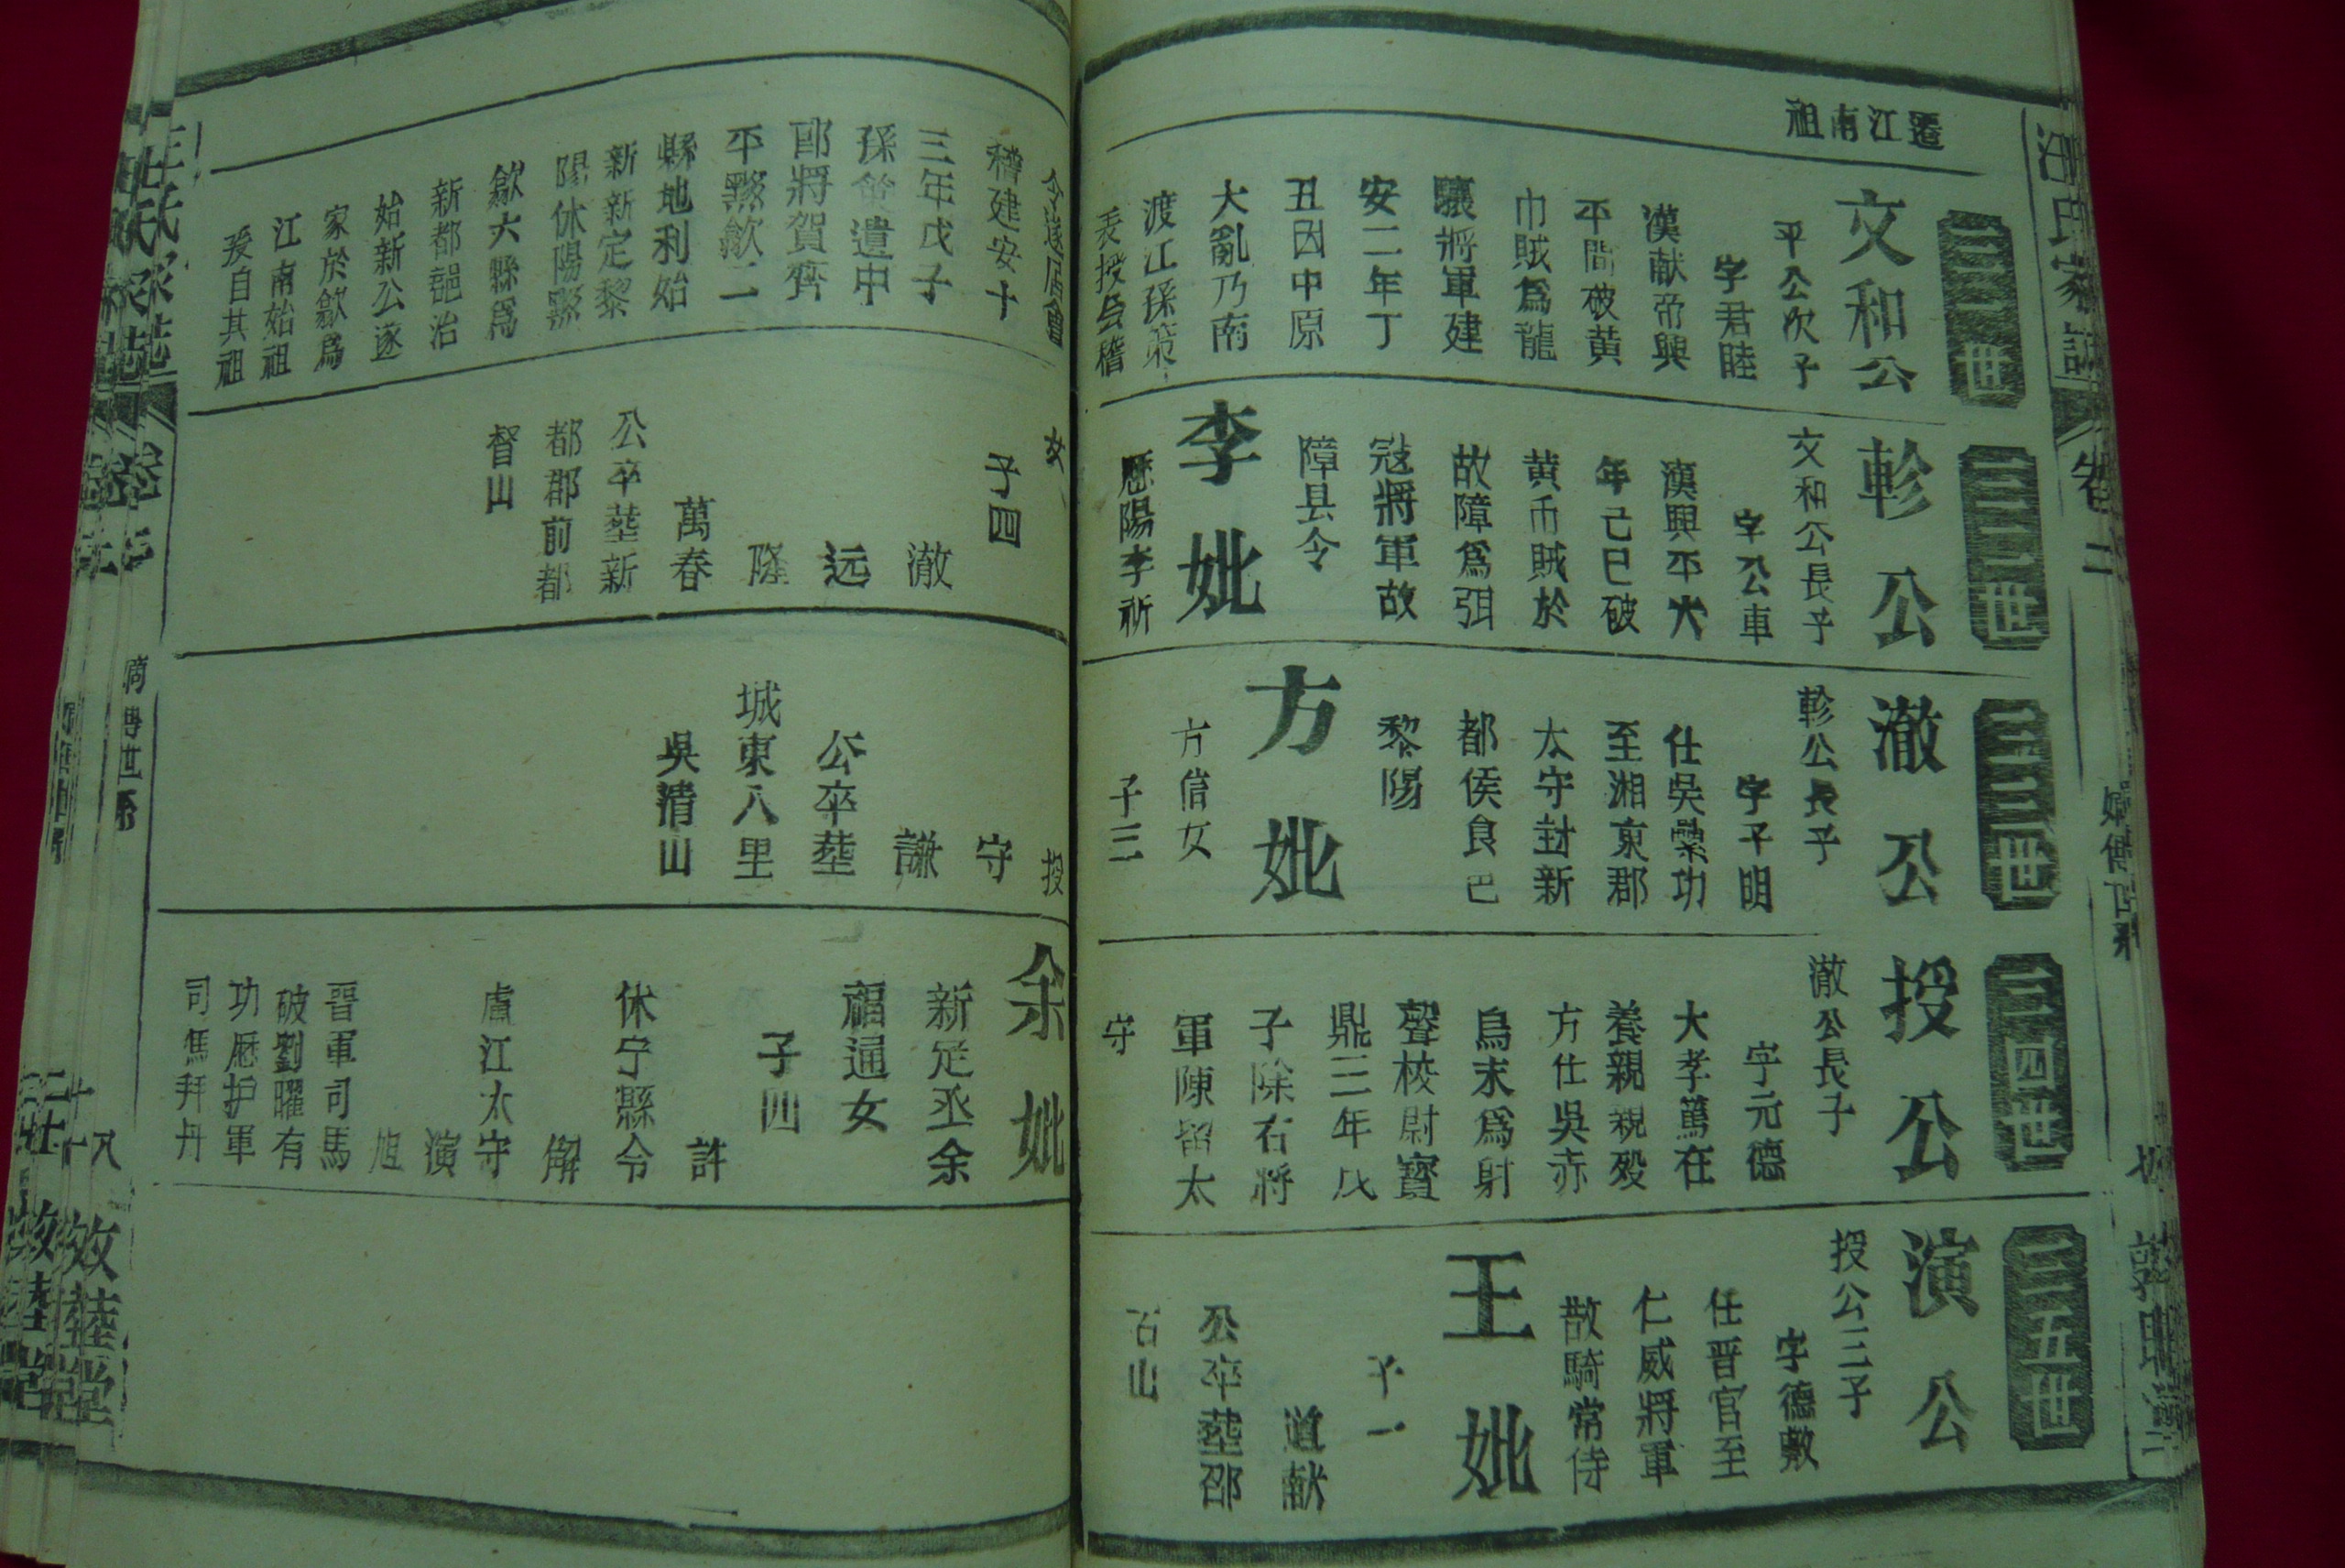 汪氏家譜
卷二
遷江南祖
三一世
文和公
平公次子
字君睦
漢献帝興
平間破黄
巾賊爲龍
驤將軍建
安二年丁
丑因中原
大亂乃南
渡江孫策
表授会稽
令遂居會
稽建安十
三年戊子
孫㑹遣中
郎將賀齊
平黟歙二
縣地利始
新新定黎
陽休陽黟
歙六縣爲
新都郡治
始新公遂
家於歙爲
江南始祖
爰自其祖
三二世
軫公
文和公長子
字公車
漢興平六
年己巳破
黄巾賊於
故障爲弭
冦將軍故
障县令
李妣
歷陽李祈
女
子四
澈
远
隆
萬春
公卒塟新
都郡前都
督山
三三世
澈公
軫公長子
字子明
仕吳纍功
至湘東郡
太守封新
都侯食邑
黎陽
方妣
方信女
子三
授
守
謙
公卒塟
城東八里
吳清山
三四世
授公
澈公長子
字元德
大孝篤在
養親親殁
方仕吳赤
烏末爲射
聲校尉寳
鼎三年戊
子除右將
軍陳留太
守
余妣
新定丞余
福通女
子四
許
休宁縣令
解
盧江太守
演
旭
晋軍司馬
破劉曜有
功歷护軍
司馬拜丹
三五世
演公
授公三子
字德敷
任晋官至
仁威將軍
散騎常侍
王妣
子一
道献
公卒塟邵
石山
效睦堂